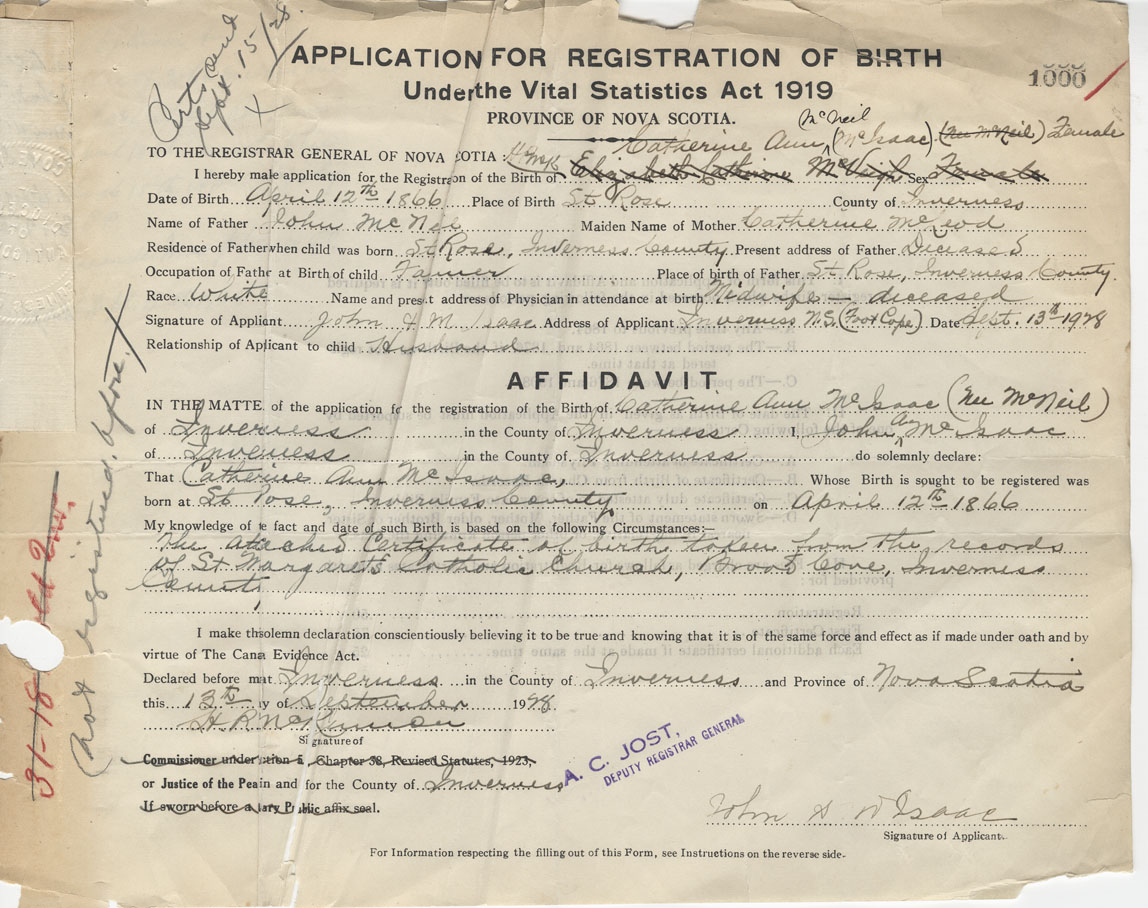 Certs send
Sept. 15/28
X
APPLICATION FOR REGISTRATION OF BIRTH
1000
Under the Vital Statistics Act 1919
PROVINCE OF NOVA SCOTIA.
McNeil
Catherine Ann (McIsaac) (Nee McNeil) Female
TO THE REGISTRAR GENERAL OF NOVA COTIA :
I hereby make application for the Registration of the Birth of Elizabeth Catherine Sex Female
Date of Birth April 12th 1866 Place of Birth St Rose County of Inverness
Name of Father John McNeil Maiden Name of Mother Catherine McLeod
Residence of Father when child was born St Rose, Inverness County Present address of Father Deceased
Occupation of Fathr at Birth of child Farmer Place of birth of Father St Rose, Inverness County
Race White Name and prest address of Physician in attendance at birth Midwife — deceased
Signature of Applicant John Isaac Address of Applicant Inverness N.S. Date Sept. 13th 1928
Relationship of Aplicant to child Husband
AFFIDAVIT
IN THE MATTE of the application fr the registration of the Birth of Catherine Ann McIsaac (Nee McNeil)
of Inverness in the County of Inverness I, John A McIsaac
of Inverness in the County of Inverness do solemnly declare:
That Catherine Ann McIsaac, Whose Birth is sought to be registered was
born at St Rose, Inverness County on April 12th 1866
My knowledge of te fact and date of such Birth is based on the following Circumstances:—
The attached Certificate of birth taken from the records
of St Margarets Catholic Church, Broad Cove, Inverness
County
I make thsolemn declaration conscientiously believing it to be true and knowing that it is of the same force and effect as if made under oath and by
virtue of The Cana Evidence Act.
Declared before me at Inverness in the County of Inverness and Province of Nova Scotia
this 13th y of September 1928.
H. R. McKinnon
Signature of
Commissioner under tion 5, Chapter 38, Revised Statutes, 1923,
or Justice of the Pea in and for the County of Inverness
If sworn before a tary Public affix seal.
A. C. JOST,
DEPUTY REGISTRAR GENERAL
John A McIsaac
Signature of Applicant.
For Information respecting the filling out of this Form, see Instructions on the reverse side.
Not registered before. X
31-18